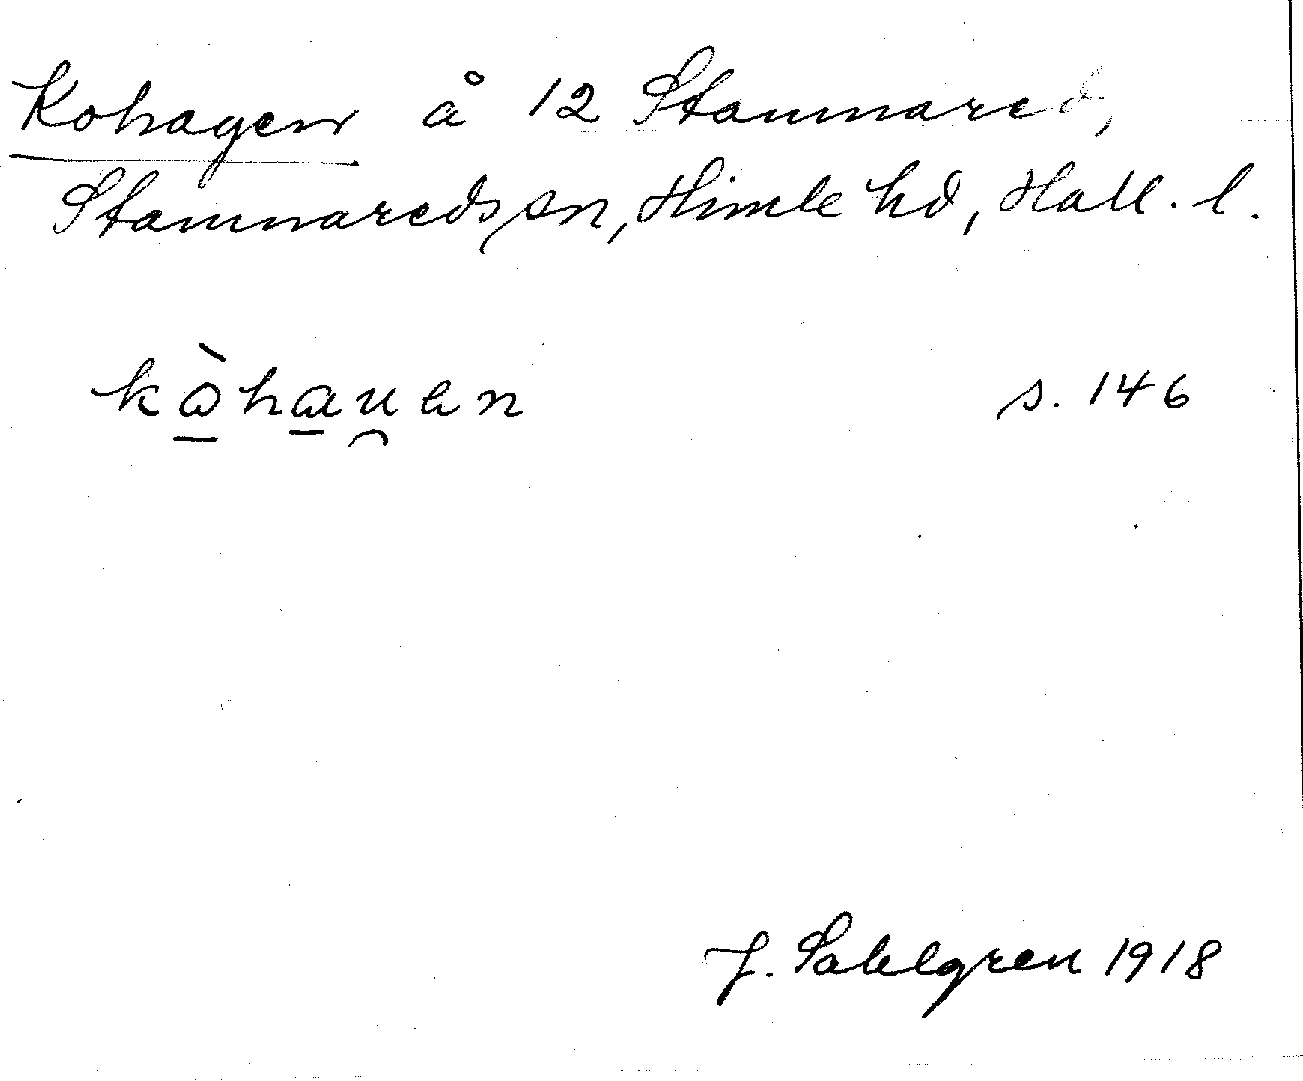 Kohagen å 12 Stamnared,
Stamnareds sn, Himle hd, Hall. l.
kò̱ha̱u̯en s. 146
J. Sahlgren 1918